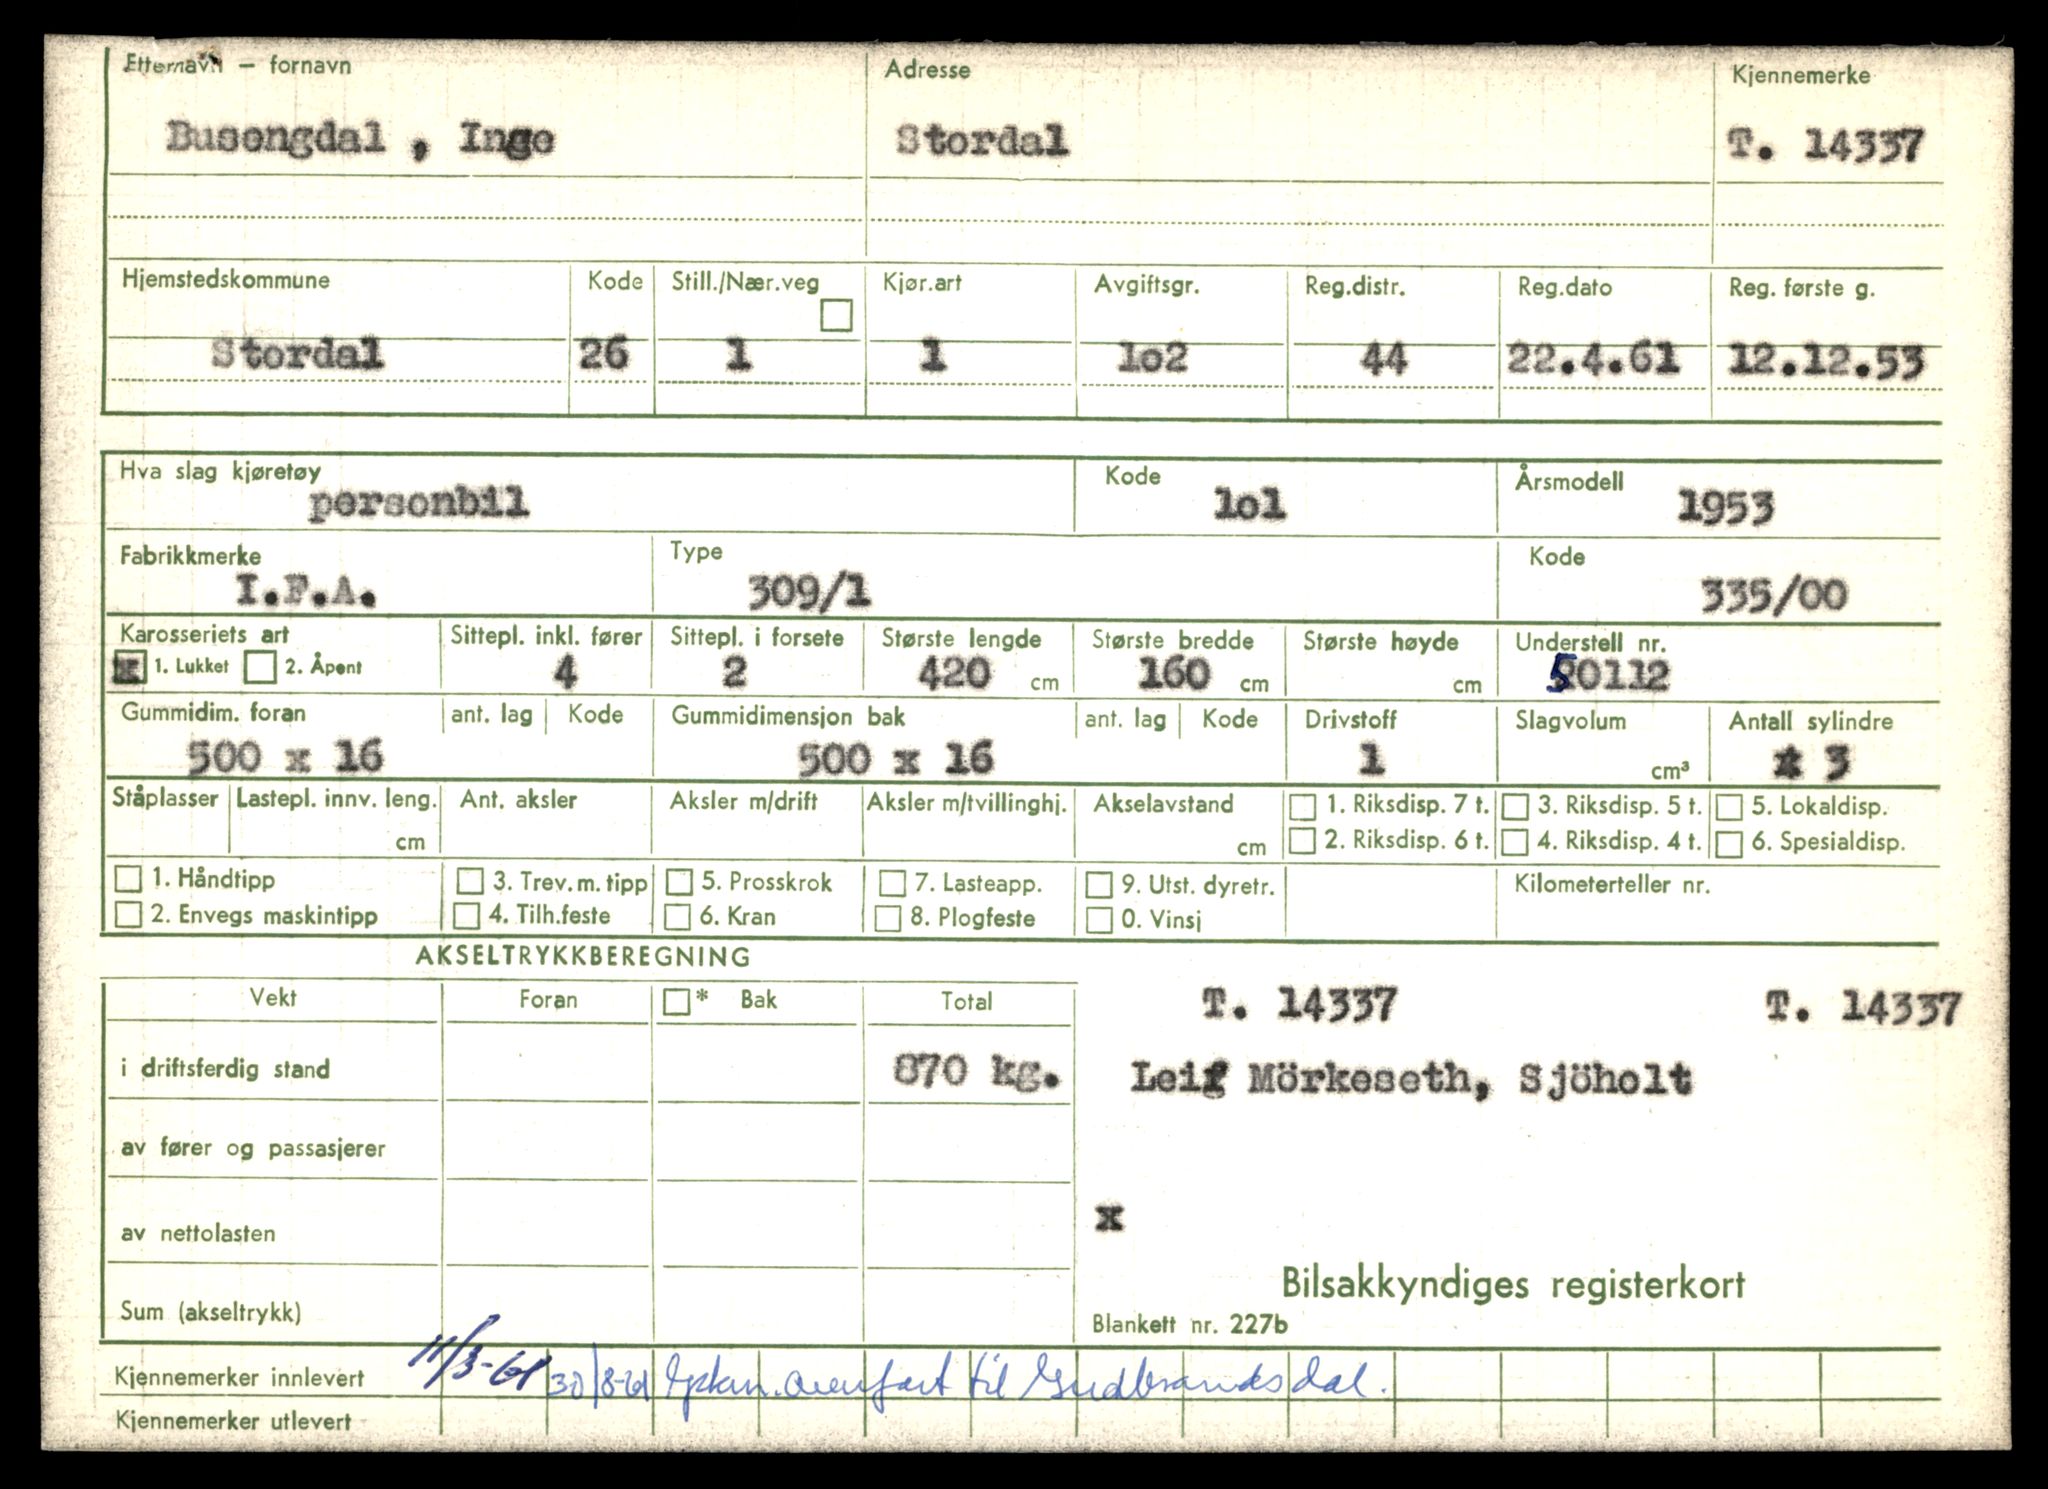 Etternavn — fornavn Adresse Kjennemerke
Busengdal , Inge Stordal T. 14337
Hjemstedskommune Kode Still./Nær.veg Kjør.art Avgiftsgr. Reg.distr. Reg.dato Reg. første g.
Stordal 26 1 1 1o2 44 22.4.61 12.12.53
Hva slag kjøretøy Kode Årsmodell
personbil 1o1 1953
Fabrikkmerke Type Kode
I.F.A. 309/1 335/00
Karosseriets art Sittepl. inkl. fører Sittepl. i forsete Største lengde Største bredde Største høyde Understell nr.
x 1. Lukket 2. Åpent 4 2 420 cm 160 cm cm 50112
Gummidim. foran ant. lag Kode Gummidimensjon bak ant. lag Kode Drivstoff Slagvolum Antall sylindre
500 x 16 500 x 16 1 cm³ 3
Ståplasser Lastepl. innv. leng. Ant. aksler Aksler m/drift Aksler m/tvillinghj. Akselavstand 1. Riksdisp. 7 t. 3. Riksdisp. 5 t. 5. Lokaldisp.
cm cm 2. Riksdisp. 6 t. 4. Riksdisp. 4 t. 6. Spesialdisp.
1. Håndtipp 3. Trev. m. tipp 5. Prosskrok 7. Lasteapp. 9. Utst. dyretr. Kilometerteller nr.
2. Envegs maskintipp 4. Tilh.feste 6. Kran 8. Plogfeste 0. Vinsj
AKSELTRYKKBEREGNING
Vekt Foran * Bak Total T. 14337 T. 14337
i driftsferdig stand 870 kg. Leif Mörkeseth, Sjöholt
av fører og passasjerer
av nettolasten x
Bilsakkyndiges registerkort
Sum (akseltrykk) Blankett nr. 227b
Kjennemerker innlevert 11/3-61 30/8-61 overført til Gudbrandsdal.
Kjennemerker utlevert